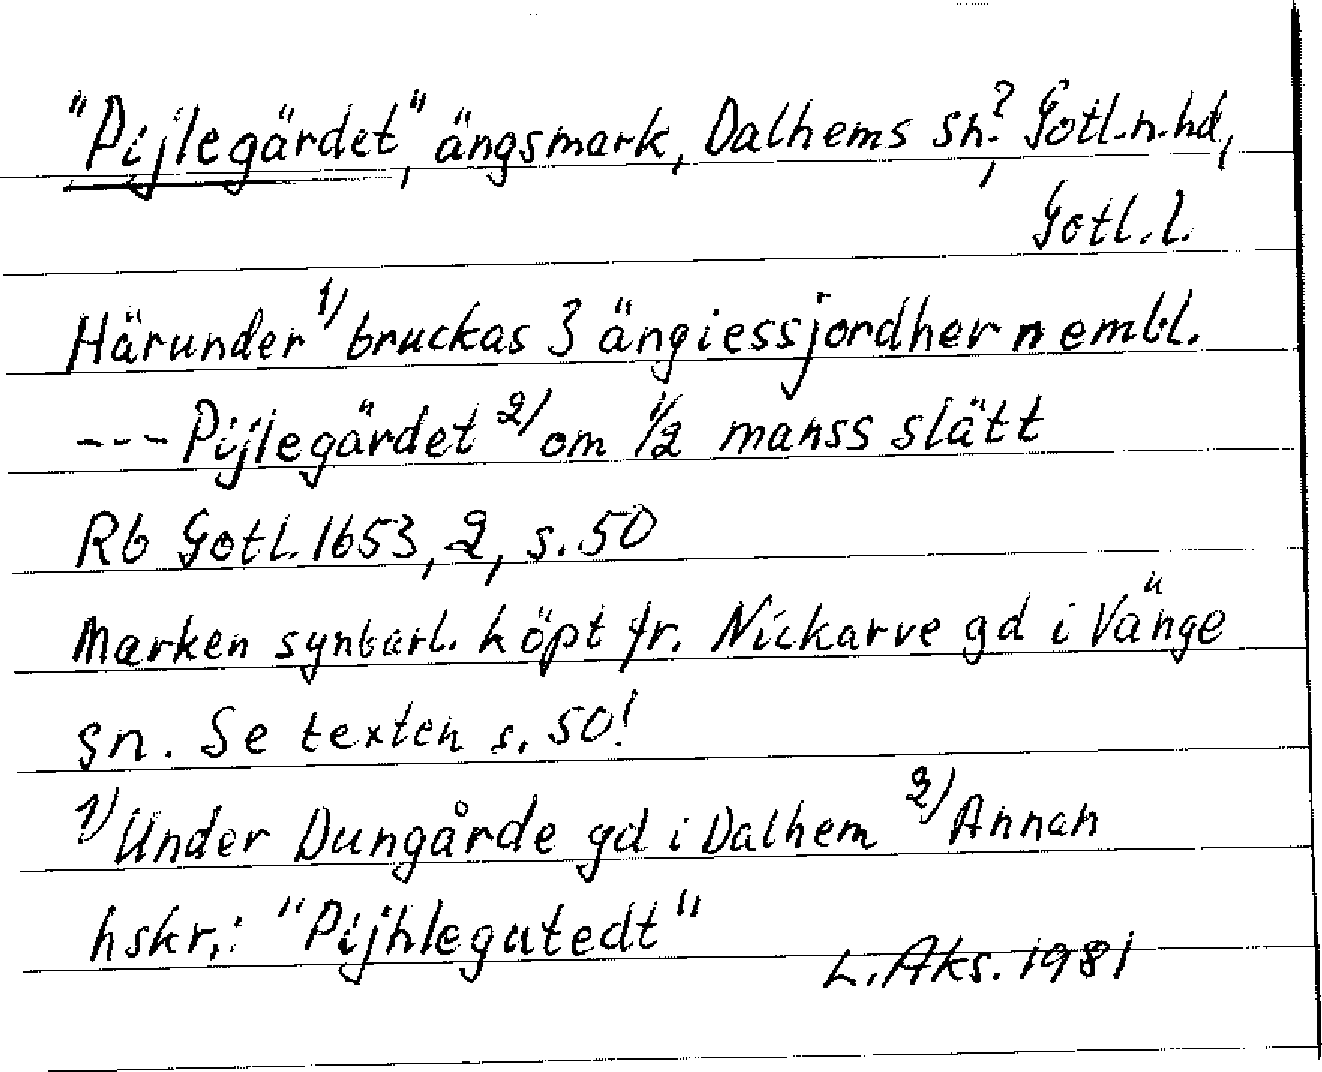 "Pijlegärdet", ängsmark, Dalhems sn?, Gotl.n.hd,
Gotl.l.
Härunder 1) bruckas 3 ängiessjordher nembl.
--- Pijlegärdet 2) om 1/2 manss slätt
Rb Gotl. 1653, 2, s. 50
Marken synbarl. köpt fr. Nickarve gd i Vänge
sn. Se texten s. 50!
1) Under Dungårde gd i Dalhem 2) Annan
hskr.: "Pijhlegatedt"
L. Aks. 1981